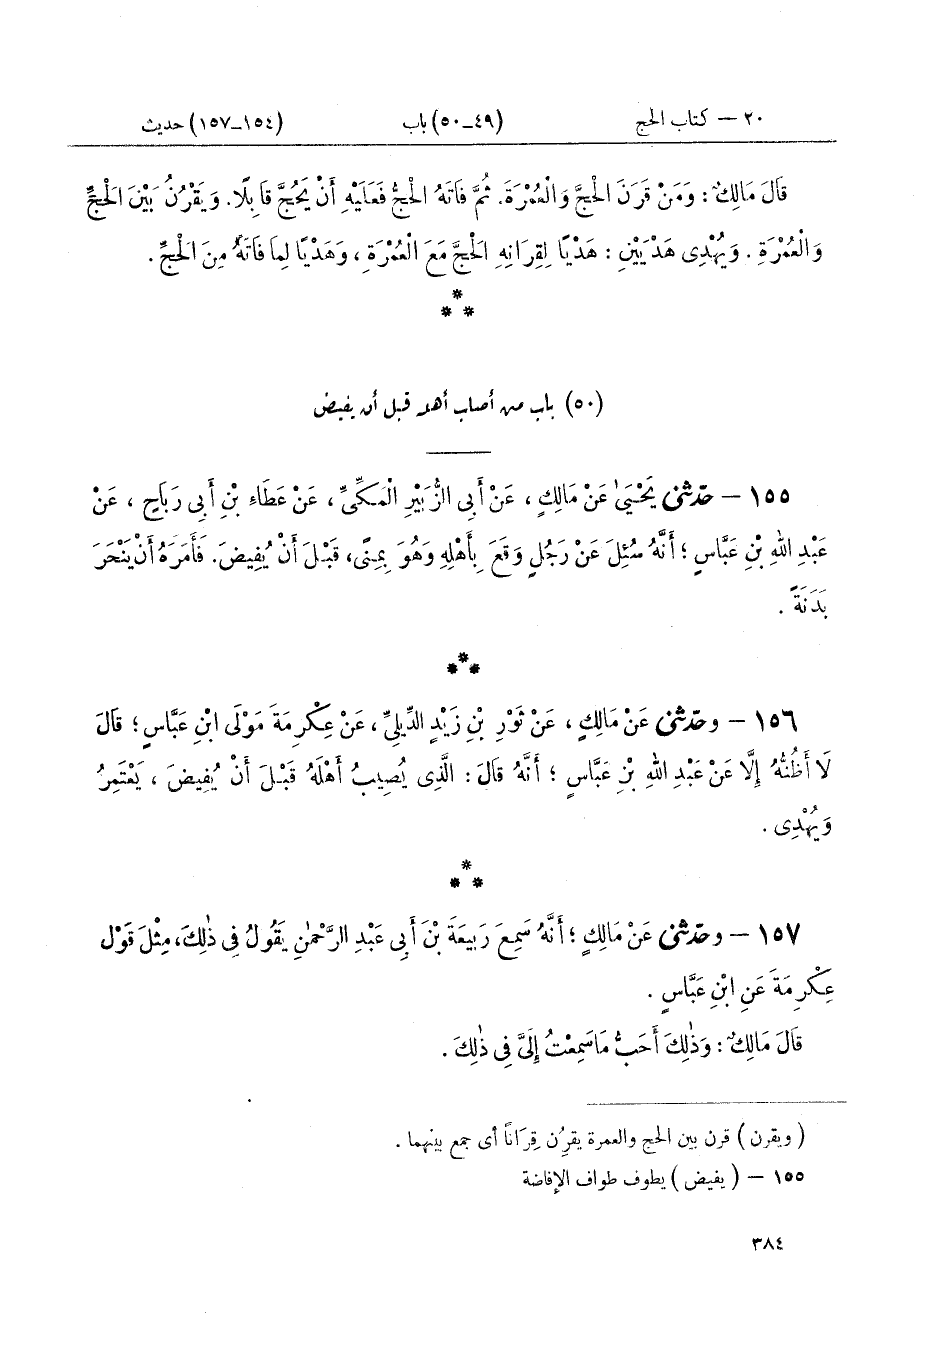 ٢٠ — كتاب الحج (٤٩ـ٥٠) باب (١٥٤ـ١٥٧) حديث
قَالَ مَالِكٌ : وَمَنْ قَرَنَ الْحَجَّ وَالْعُمْرَةَ. ثُمَّ فَاتَهُ الْحَجُّ فَعَلَيْهِ أَنْ يَحُجَّ قَابِلًا. وَيَقْرُنُ بَيْنَ الْحَجِّ
وَالْعُمْرَةِ . وَيُهْدِى هَدْيَيْنِ : هَدْيًا لِقِرَانِهِ الْحَجَّ مَعَ الْعُمْرَةِ ، وَهَدْيًا لِمَا فَاتَهُ مِنَ الْحَجِّ .
*
* *
(٥٠) باب من أصاب أهله قبل أن يفيض
١٥٥ — حدّثنى يَحْيَىٰ عَنْ مَالِكٍ ، عَنْ أَبِى الزُّبَيْرِ الْمَكِّىِّ ، عَنْ عَطَاءِ بْنِ أَبِى رَبَاحٍ ، عَنْ
عَبْدِ اللهِ بْنِ عَبَّاسٍ ؛ أَنَّهُ سُئِلَ عَنْ رَجُلٍ وَقَعَ بِأَهْلِهِ وَهُوَ بِمِنًى، قَبْلَ أَنْ يُفِيضَ. فَأَمَرَهُ أَنْ يَنْحَرَ
بَدَنَةً .
*
* *
١٥٦ — وحدّثنى عَنْ مَالِكٍ ، عَنْ ثَوْرِ بْنِ زَيْدٍ الدِّيلِىِّ ، عَنْ عِكْرِمَةَ مَوْلَى ابْنِ عَبَّاسٍ ؛ قَالَ
لَا أَظُنُّهُ إِلَّا عَنْ عَبْدِ اللهِ بْنِ عَبَّاسٍ ؛ أَنَّهُ قَالَ : الَّذِى يُصِيبُ أَهْلَهُ قَبْلَ أَنْ يُفِيضَ ، يَعْتَمِرُ
وَيُهْدِى .
*
* *
١٥٧ — وحدّثنى عَنْ مَالِكٍ ؛ أَنَّهُ سَمِعَ رَبِيعَةَ بْنَ أَبِى عَبْدِ الرَّحْمٰنِ يَقُولُ فِى ذٰلِكَ، مِثْلَ قَوْلِ
عِكْرِمَةَ عَنِ ابْنِ عَبَّاسٍ .
قَالَ مَالِكٌ : وَذٰلِكَ أَحَبُّ مَا سَمِعْتُ إِلَىَّ فِى ذٰلِكَ .
( ويقرن ) قرن بين الحج والعمرة يقرُن قِرَاناً أى جمع بينهما .
١٥٥ — ( يفيض ) يطوف طواف الإفاضة
٣٨٤